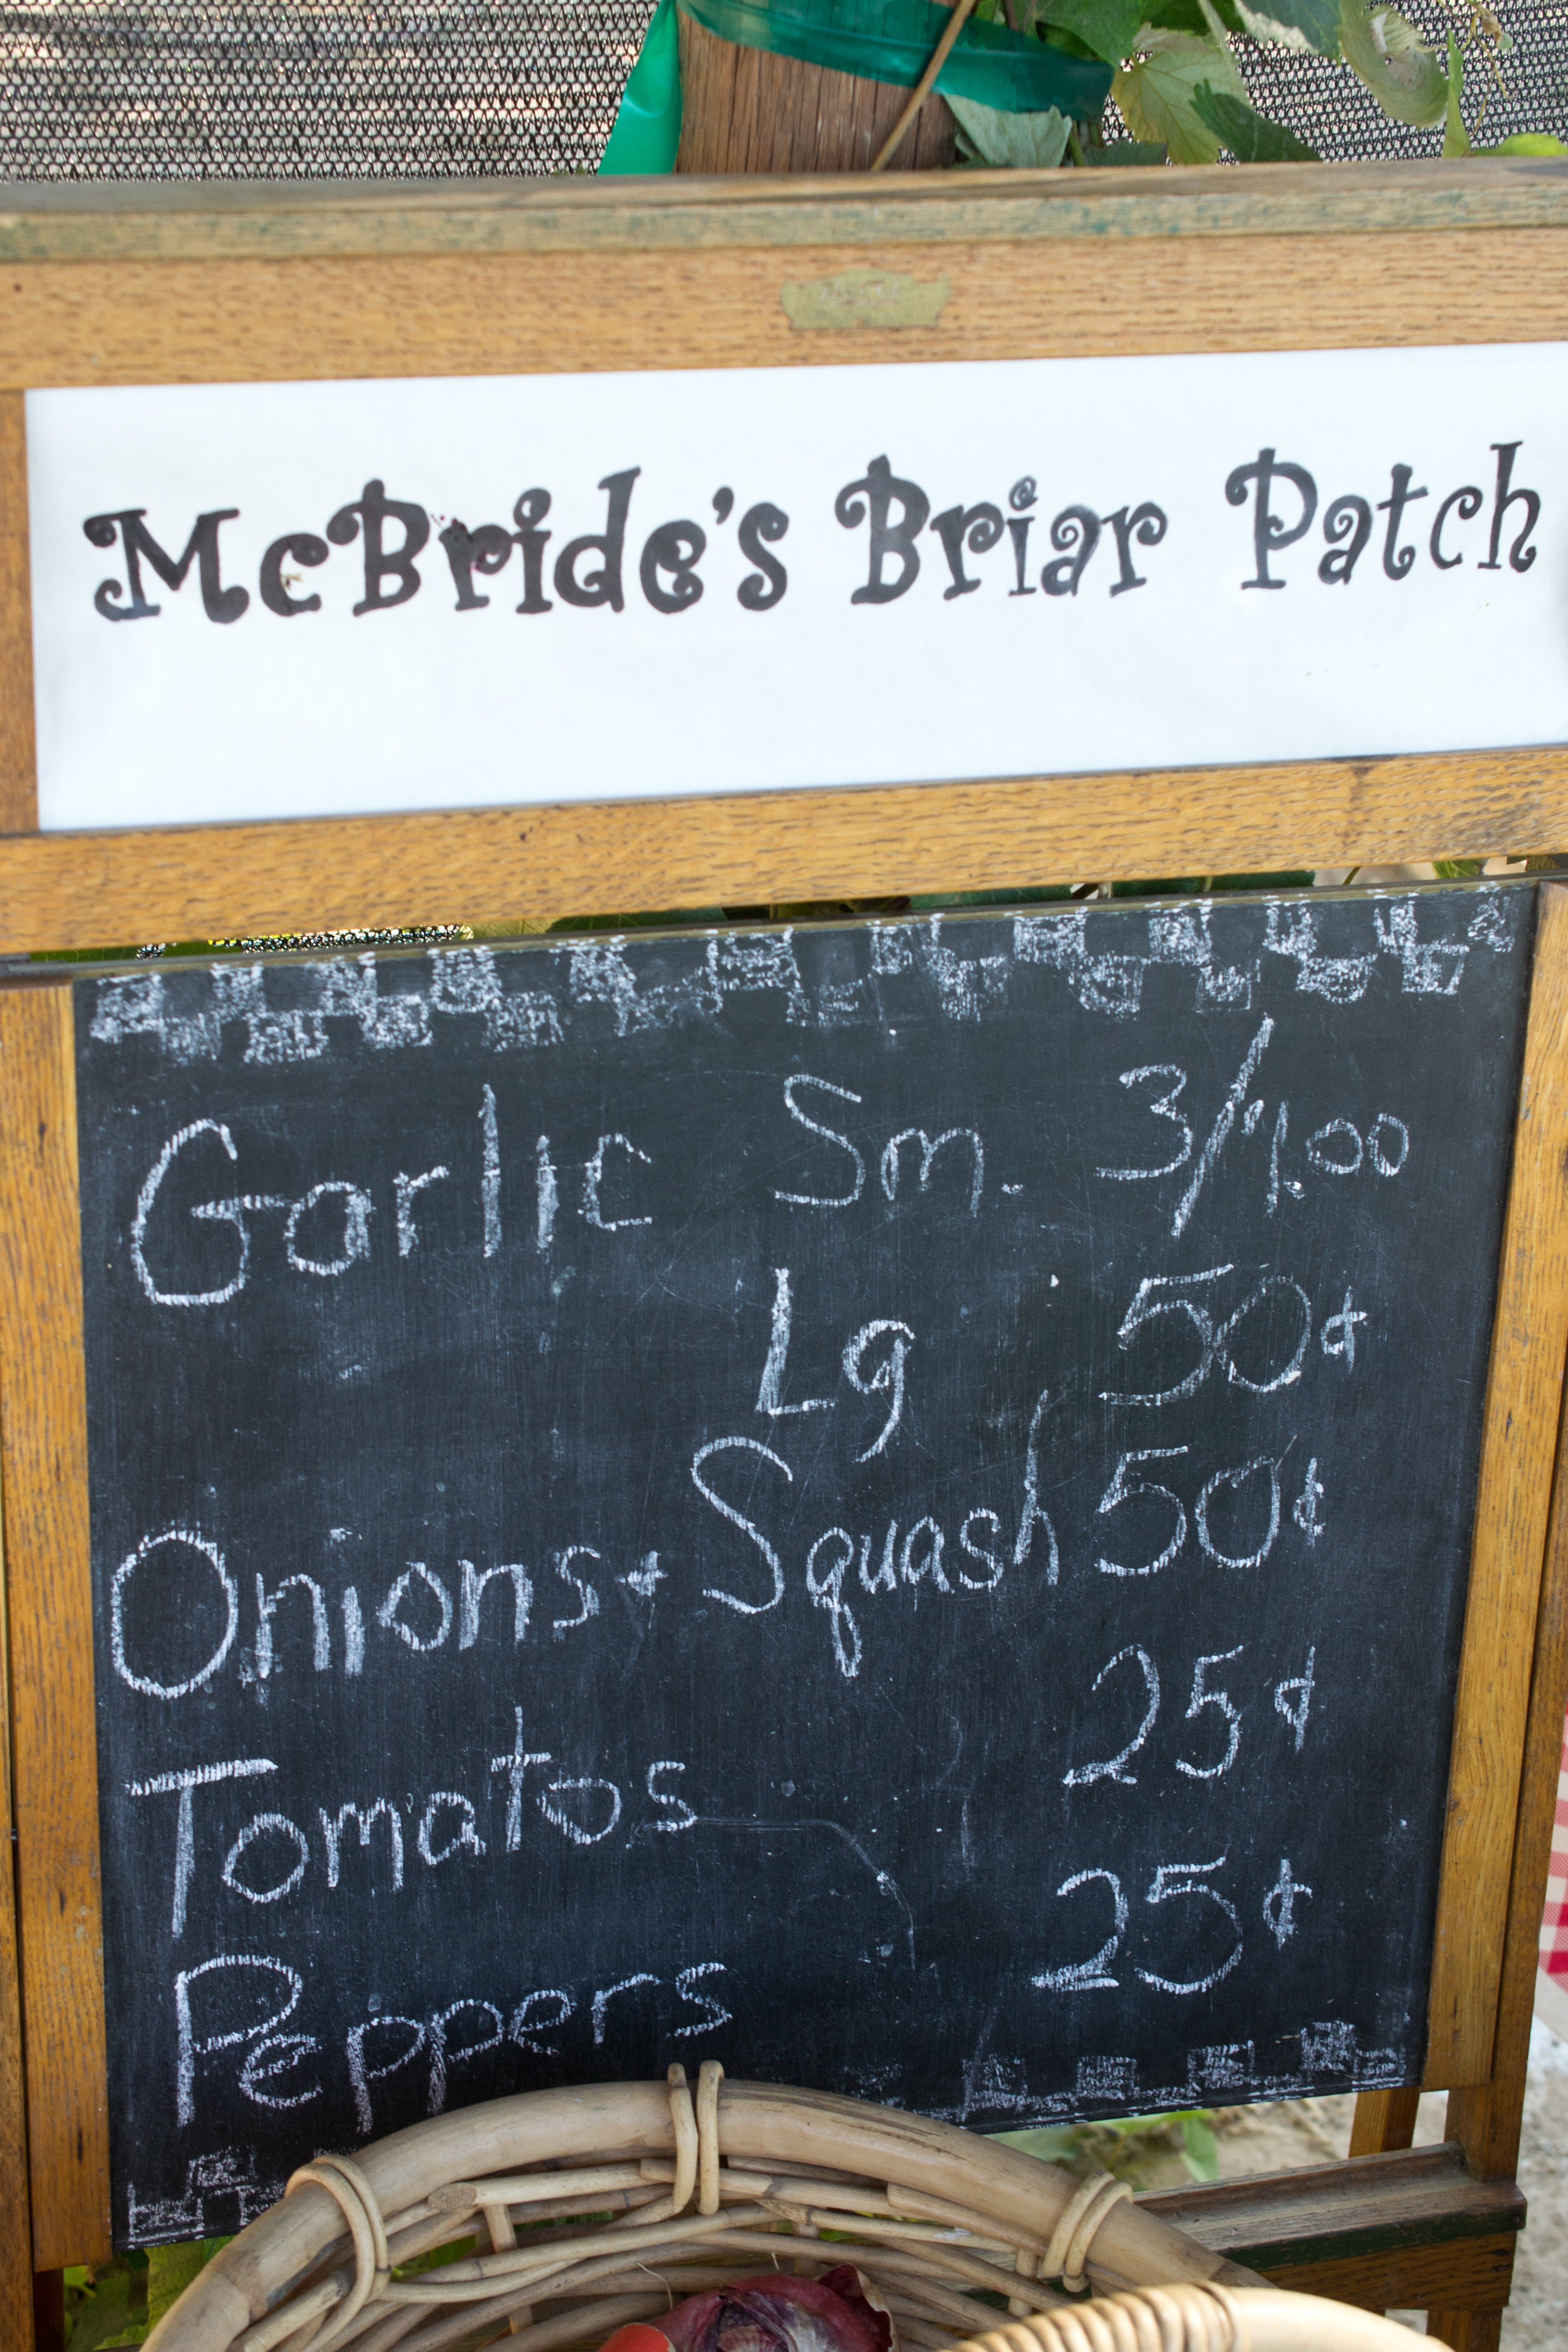 McBride's Briar Patch
Garlic Sm. 3/1.00
Lg 50¢
Onions & Squash 50¢
Tomatos 25¢
Peppers 25¢